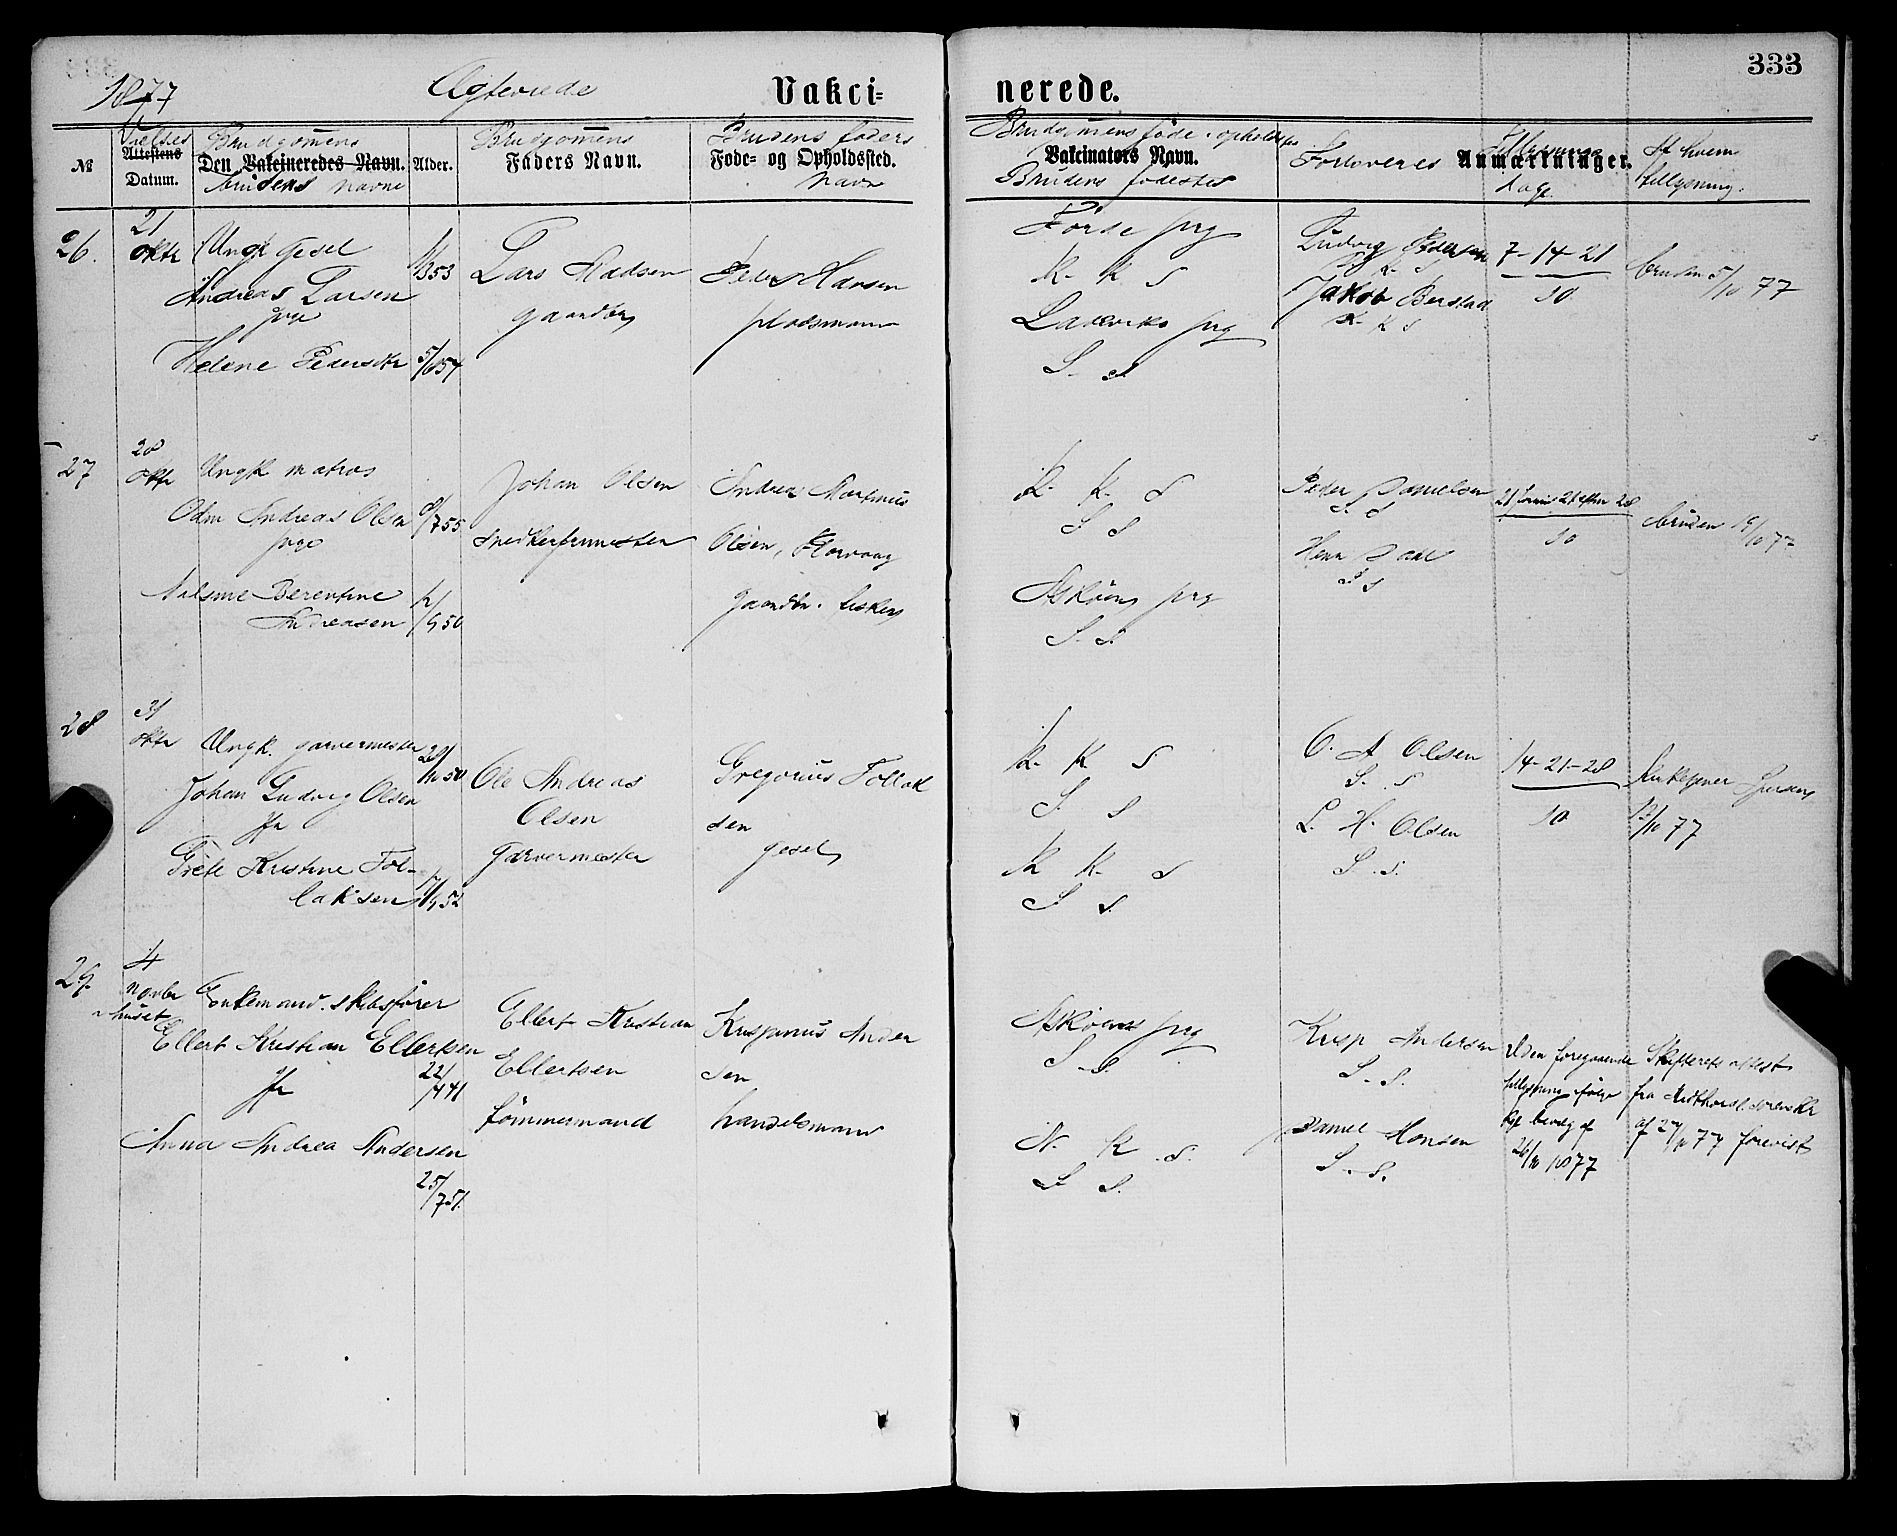 333
1877 Ægteviede Vakci-
nerede.
№
Vielses
Attestens
Datum.
Brudgomens
Den Vakcineredes Navn.
brudens navne
Alder.
Brudgomens
Faders Navn.
Brudens faders
Føde- og Opholdssted.
navn
Brudgomens føde-
Vakcinators Navn.
Brudens fødested
Forloveres
Anmærkninger.
dage
Af hvem
tillysning.
26.
21
oktr
Ungk gesel
Andreas Larsen
pige
Helene Pedersdtr
Lars Madsen
gaardbr
Peder Hansen
pladsmann
Førde prg
K. K S
Ladviks prg
S. S.
Ludvig Pedersen
K. S
Jakob Berstad
K. K S
7-14-21
10
bruden 5/10 77
27
28
oktr
Ungk matros
Odm Andreas Olsen
8/7 55
pige
Nilsine Berentine
Andreasen
Johan Olsen
Andreas Martinus
Olsen, Florvaag
gaardbr. fisker
K. K. S
S S
Askøens prg
S. S.
Peder Danielsen
S. S
S S
10
bruden 19/10 77
28
31
oktr
Ungk. garvermester
29/10 50
Johan Ludvig Olsen
jfr
Grete Kristine Fol-
laksen
Ole Andreas
Olsen
Garvermester
Gregorius Follak
sen
gesel
K. K S
S. S
K K. S
S. S.
O. A Olsen
S. S
L. H. Olsen
S. S.
14-21-28
10
12/10 77
29.
4
novbr
i huset
Enkemand. skibsfører
Ellert Kristian Ellertsen
22/4 41
jfr
Anna Andrea Andersen
25/7 51.
Ellert Kristian
Ellertsen
tømmermand
Krispinus Ander
sen
handelsmann
Askøens prg
S. S.
N. K. S.
S. S.
Krisp Andersen
S. S.
Daniel Hansen
S. S.
Uden foregaaende
tillysning ifølge
kgl bevilg af
26/10 1877
Skifterets attest
fra Nordhordl. sorenskr
af 27/10 77 forevist